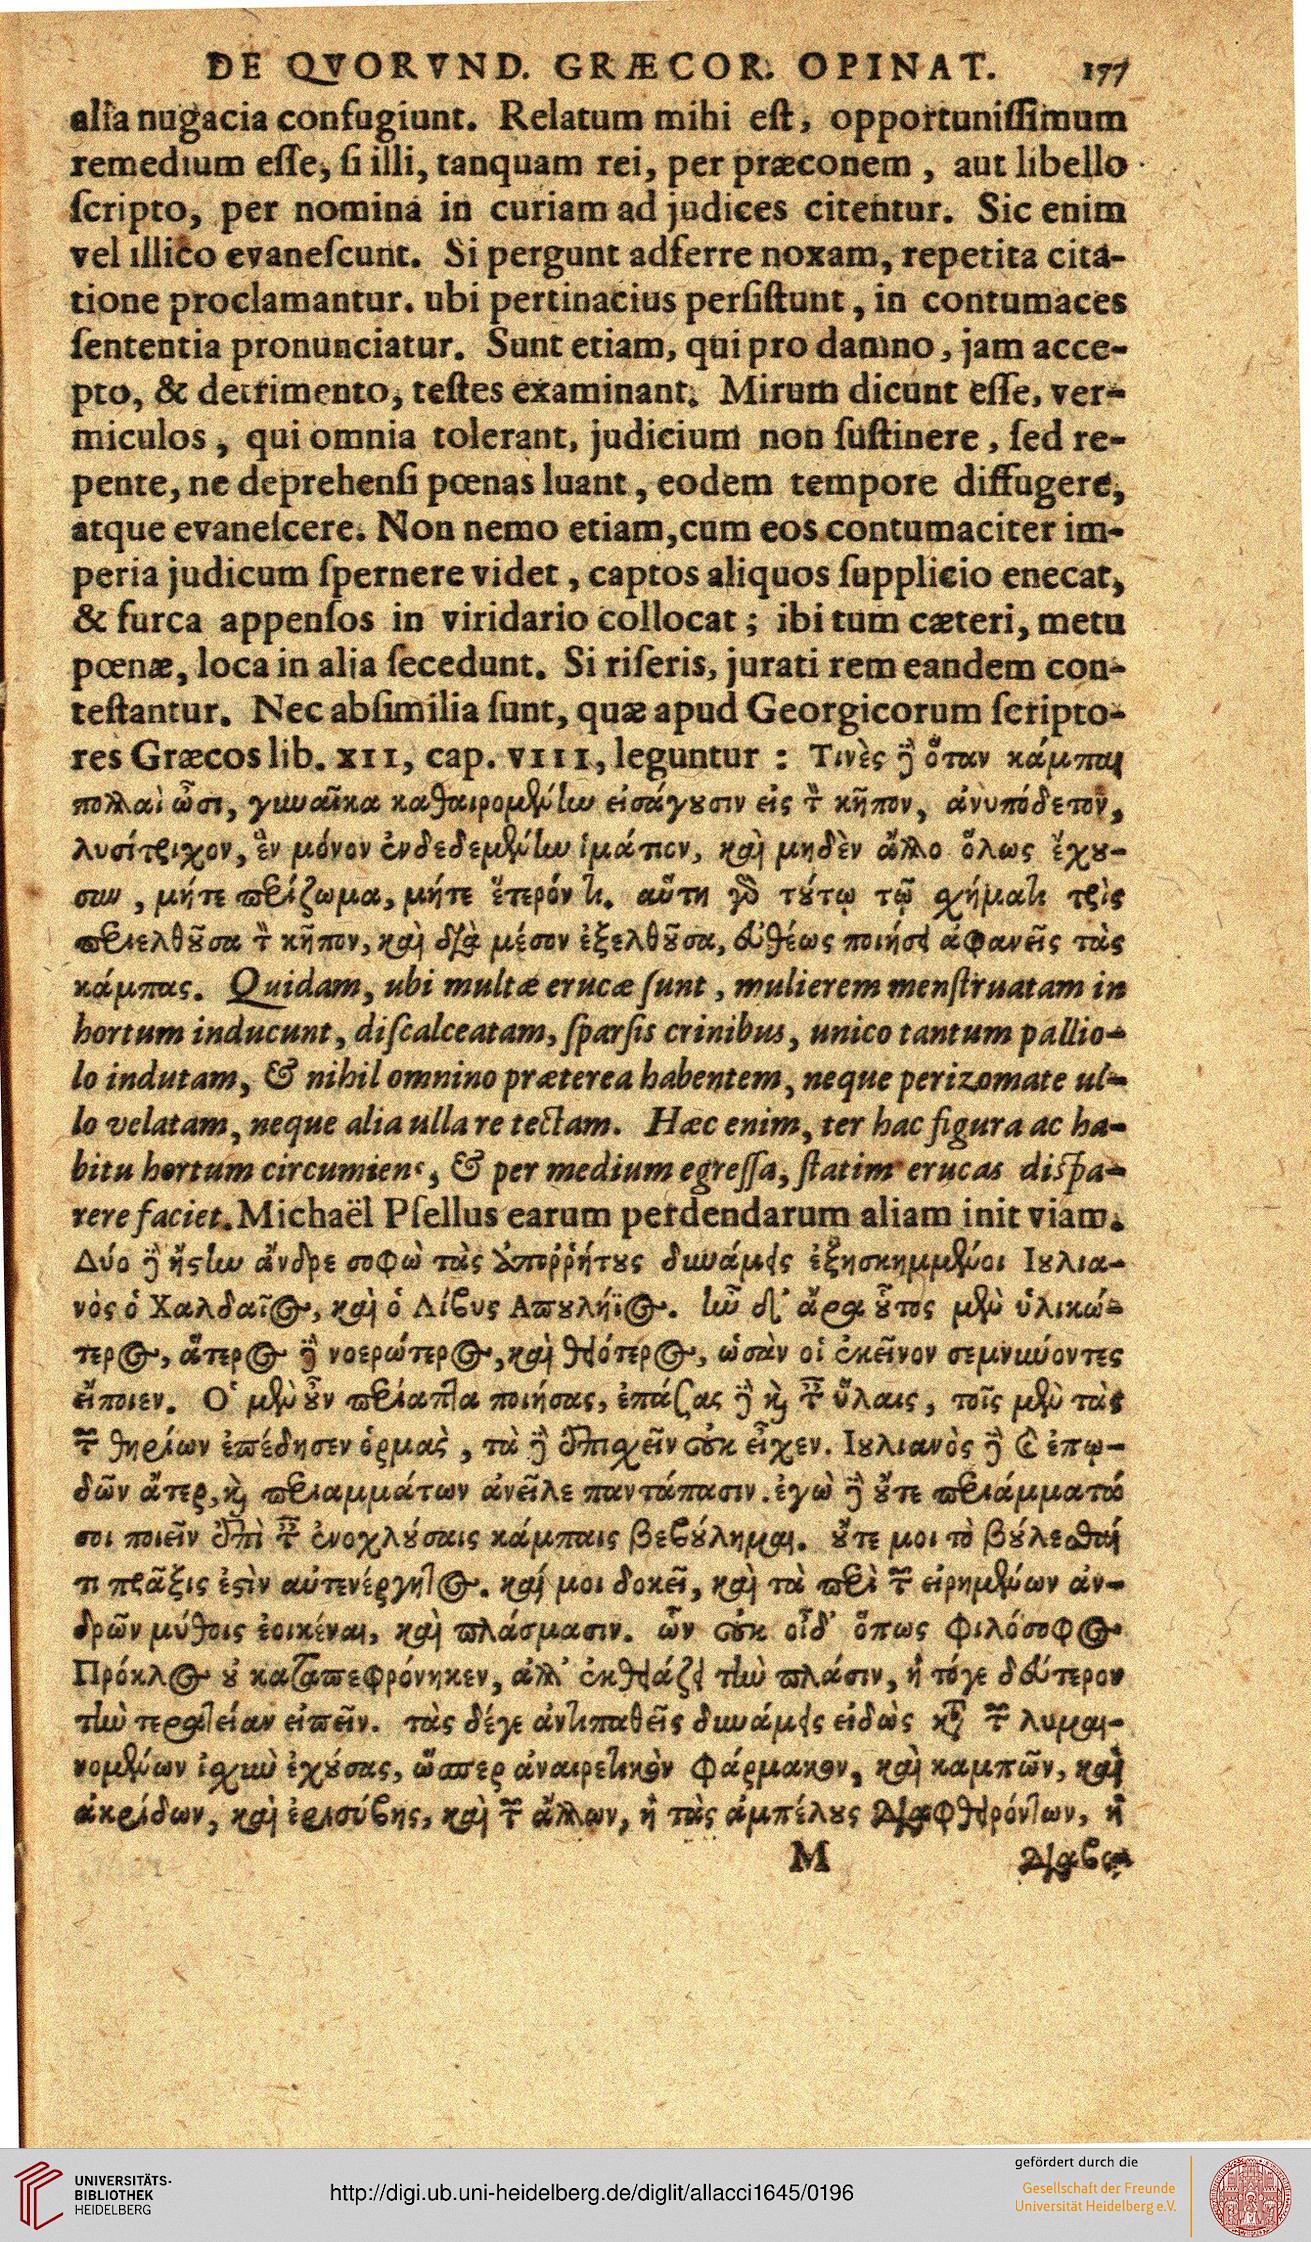 DE QVORVND. GRÆCOR. OPINAT. 177
alia nugacia confugiunt. Relatum mihi eſt, opportuniſſimum
remedium eſſe, ſi illi, tanquam rei, per præconem, aut libello
ſcripto, per nomina in curiam ad judices citentur. Sic enim
vel illico evaneſcunt. Si pergunt adferre noxam, repetita cita-
tione proclamantur. ubi pertinacius perſiſtunt, in contumaces
ſententia pronunciatur. Sunt etiam, qui pro damno, jam acce-
pto, & detrimento, teſtes examinant. Mirum dicunt eſſe, ver-
miculos, qui omnia tolerant, judicium non ſuſtinere, ſed re-
pente, ne deprehenſi pœnas luant, eodem tempore diffugere,
atque evaneſcere. Non nemo etiam, cum eos contumaciter im-
peria judicum ſpernere videt, captos aliquos ſupplicio enecat,
& furca appenſos in viridario collocat; ibi tum cæteri, metu
pœnæ, loca in alia ſecedunt. Si riſeris, jurati rem eandem con-
teſtantur. Nec abſimilia ſunt, quæ apud Georgicorum ſcripto-
res Græcos lib. XII, cap. VIII, leguntur: Τινὲς ϳ ὅταν κάμπαι
πολλαὶ ὦσι, γυναῖκα καθαιρομένην εἰσάγουσιν εἰς τ κῆπον, ἀνυπόδετον,
λυσίτριχον, ἓν μόνον ἐνδεδεμένην ἱμάτιον, καὶ μηδὲν ἄλλο ὅλως ἔχου-
σαν, μήτε περίζωμα, μήτε ἕτερόν τι. αὕτη γὸ τούτῳ τῷ σχήματι τρὶς
περιελθοῦσα τ κῆπον, καὶ διὰ μέσου ἐξελθοῦσα, εὐθέως ποιήσει ἀφανεῖς τὰς
κάμπας. Quidam, ubi multæ erucæ ſunt, mulierem menſtruatam in
hortum inducunt, diſcalceatam, ſparſis crinibus, unico tantum pallio-
lo indutam, & nihil omnino præterea habentem, neque perizomate ul-
lo velatam, neque alia ulla re tectam. Hæc enim, ter hac figura ac ha-
bitu hortum circumiens, & per medium egreſſa, ſtatim erucas diſpa-
rere faciet. Michaël Pſellus earum perdendarum aliam init viam.
Δύο ϳ ἤστην ἄνδρε σοφὼ τὰς ἀπορρήτους δυνάμεις ἐξησκημμένοι Ιουλια-
νὸς ὁ Χαλδαῖος, καὶ ὁ Λίβυς Απουλήϊος. ἦν δ' ἄρα οὗτος μὲν ὑλικώ-
τερος, ἅτερος ϳ νοερώτερος, καὶ θειότερος, ὡσὰν οἱ ἐκεῖνον σεμνύοντες
εἴποιεν. Ο μὲν οὖν περίαπτα ποιήσας, ἐπάσας ϳ καὶ τ ὕλαις, τοῖς μὲν τὰς
τ θηρίων ἐπέδησεν ὁρμὰς, τὰ ϳ ἐπισχεῖν οὐκ εἶχεν. Ιουλιανὸς ϳ καὶ ἐπῳ-
δῶν ἄτερ, καὶ περιαμμάτων ἀνεῖλε παντάπασιν. ἐγὼ ϳ οὔτε περιάμματά
σοι ποιεῖν ἐπὶ τ ἐνοχλούσαις κάμπαις βεβούλημαι. οὔτε μοι τὸ βούλεσθαί
τι πρᾶξις ἐστὶν αὐτενέργητος. καί μοι δοκεῖ, καὶ τὰ περὶ τ εἰρημένων ἀν-
δρῶν μύθοις ἐοικέναι, καὶ πλάσμασιν. ὧν οὐκ οἶδ' ὅπως φιλόσοφος
Πρόκλος οὐ καταπεφρόνηκεν, ἀλλ' ἐκθειάζει τὴν πλάσιν, ἢ τόγε δεύτερον
τὴν τερατείαν εἰπεῖν. τὰς δέγε ἀντιπαθεῖς δυνάμεις εἰδὼς κατὰ τ λυμαι-
νομένων ἰσχὺν ἐχούσας, ὥσπερ ἀναιρετικὸν φάρμακον, καὶ καμπῶν, καὶ
ἀκρίδων, καὶ ἐρισύβης, καὶ τ ἄλλων, ἢ τὰς ἀμπέλους διαφθειρόντων, ἢ
M διαβο-
UNIVERSITÄTS-
BIBLIOTHEK
HEIDELBERG
http://digi.ub.uni-heidelberg.de/diglit/allacci1645/0196
gefördert durch die
Gesellschaft der Freunde
Universität Heidelberg e.V.